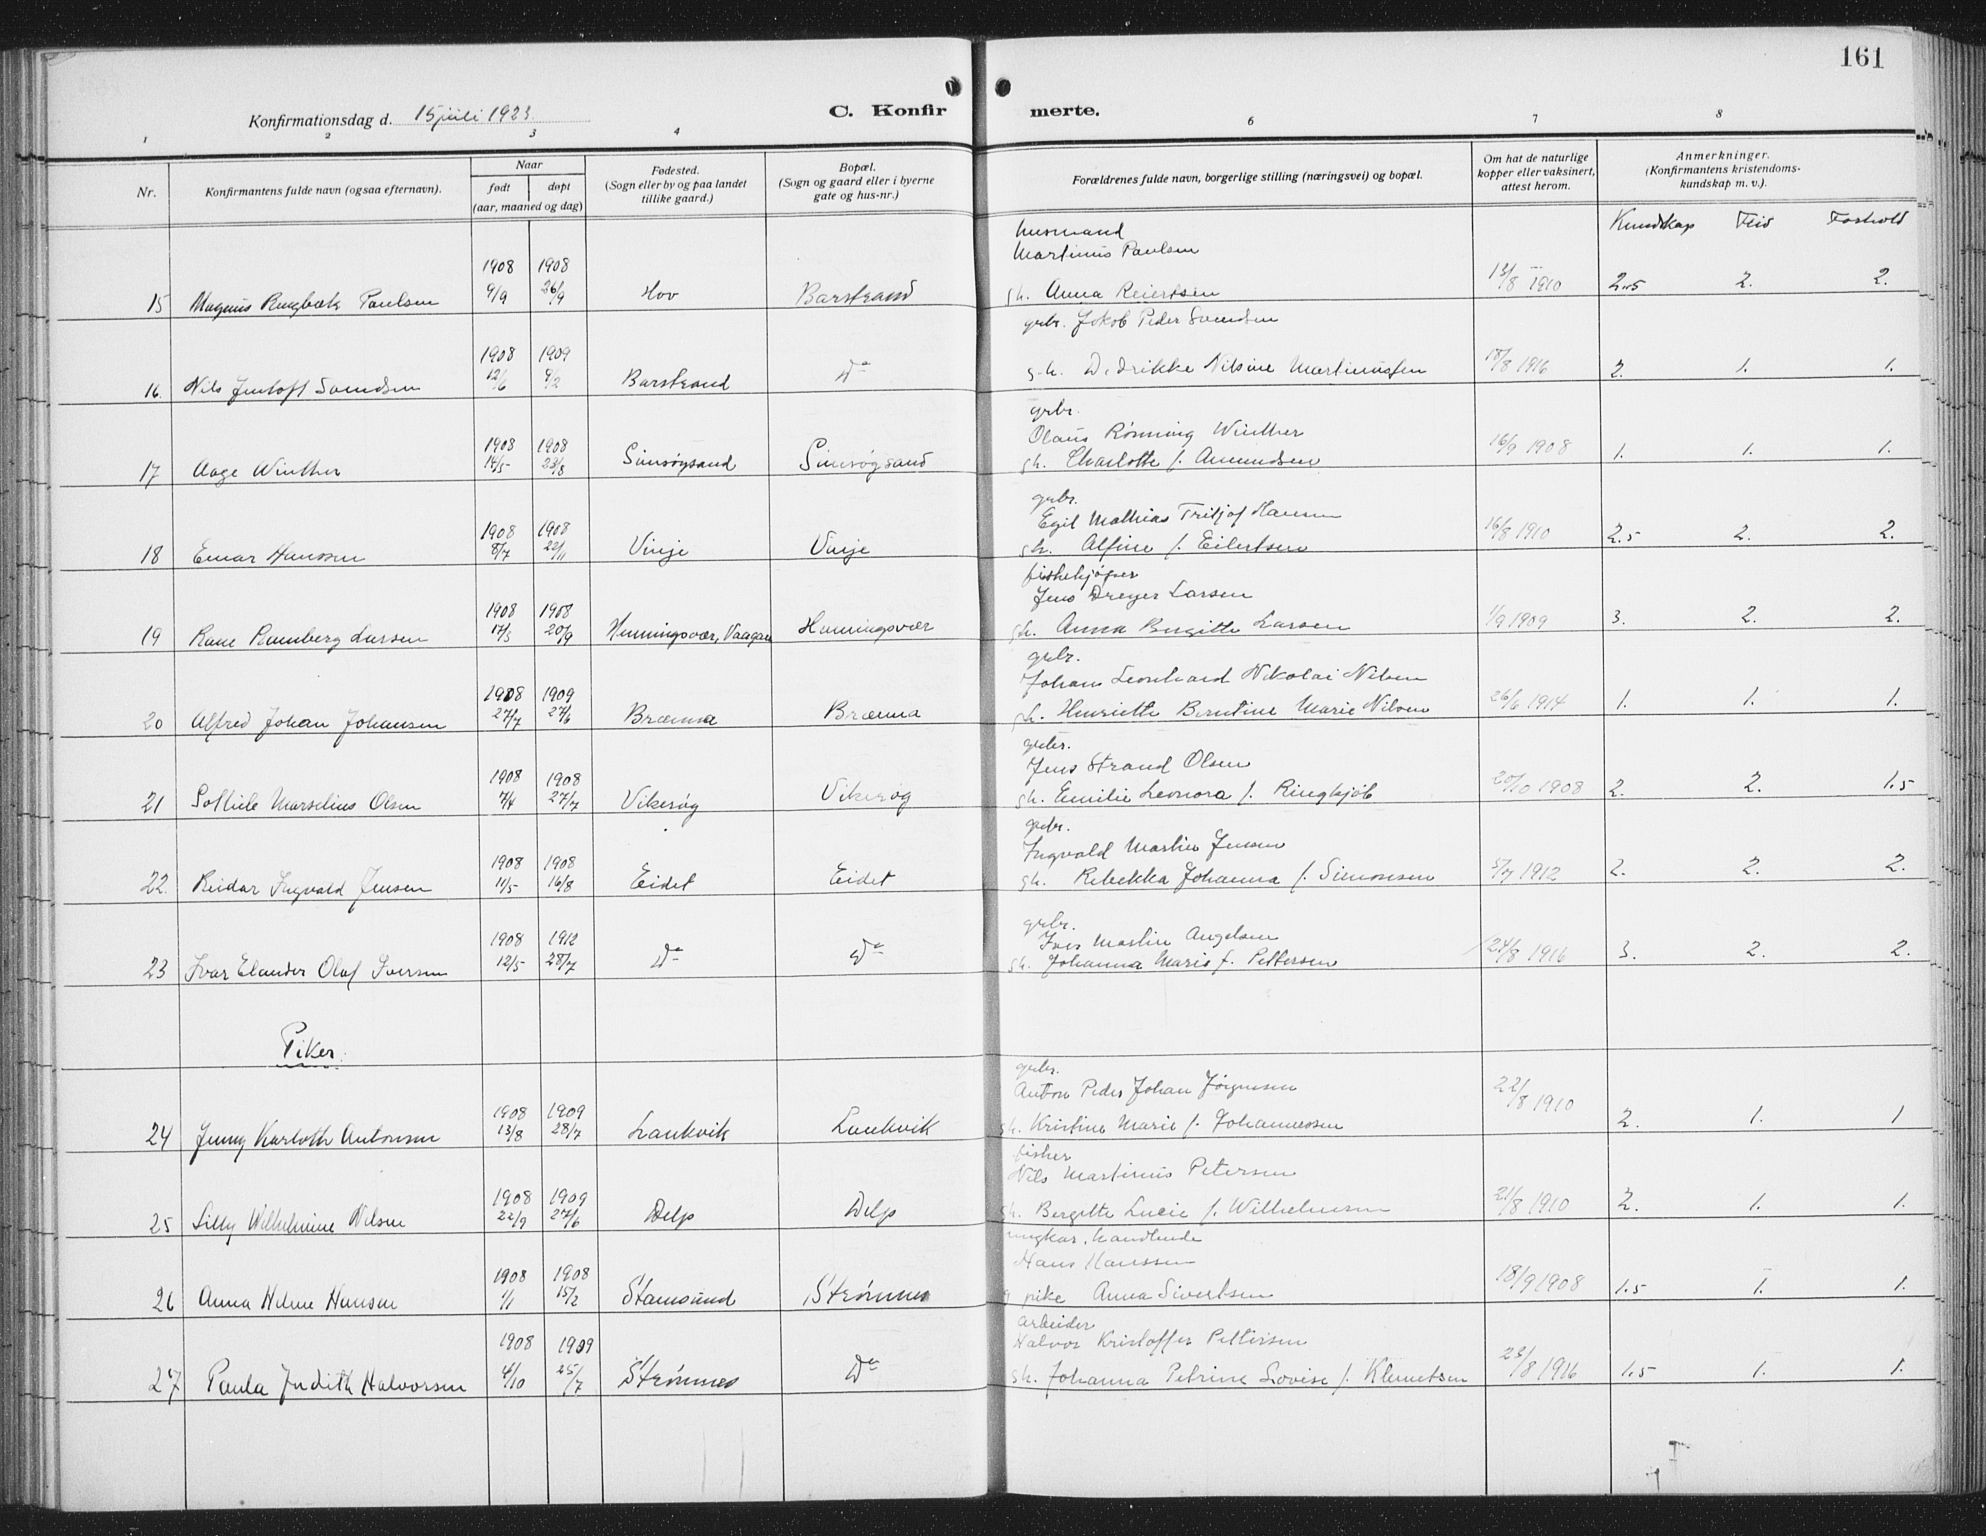 161
Konfirmationsdag d. 15 juli 1923.
C. Konfirmerte.
1 2 3 4 6 7 8
Nr.
Konfirmantens fulde navn (ogsaa efternavn).
Naar
født døpt
(aar, maaned og dag)
Fødested.
(Sogn eller by og paa landet
tillike gaard.)
Bopæl.
(Sogn og gaard eller i byerne
gate og hus-nr.)
Forældrenes fulde navn, borgerlige stilling (næringsvei) og bopæl.
Om hat de naturlige
kopper eller vaksinert,
attest herom.
Anmerkninger.
(Konfirmantens kristendoms-
kundskap m. v.).
Kundskap Flid Forhold
Husmand
Martinus Paulsen
1908 1908
15 Magnus Ringbæk Paulsen 9/9 26/9 Hov Barstrand gh. Anna Reiertsen 13/8 1910 2.5 2. 2.
grbr. Jokob Peder Svendsen
1908 1909
16. Nils Jentoft Svendsen 12/6 9/2 Barstrand Do g.h. Dedrikke Nilsine Martinussen 18/8 1916 2. 1. 1.
grbr.
Olaus Rönning Winther
1908 1908
17 Aage Winther 14/5 23/8 Sunsøysand Sunsøysand gh. Charlotte f. Amundsen 16/9 1908 1. 1. 1.
grbr.
Egil Mathias Tritjof Hansen
1908 1908
18 Einar Hanssen 8/7 22/11 Vinje Vinje gh. Alfine f. Eilertsen 16/8 1910 2.5 2. 2.
fiskekjøper
Jens Dreyer Larsen
1908 1908
19 Rane Rumberg Larsen 17/5 20/9 Henningsvær, Vaagan Henningsvær gh. Anna Birgitte Larsen 1/9 1909 3. 2. 2.
grbr.
Johan Leonhard Nikolai Nilsen
1908 1909
20 Alfred Johan Johansen 27/7 27/6 Brænna Brænna gh. Henriette Berntine Marie Nilsen 26/6 1914 1. 1. 1.
grbr.
Jens Strand Olsen
1908 1908
21 Marselius Olsen 7/4 27/7 Vikjerøg Vikerøg gh. Emilie Leonora f. Ringkjøb 20/10 1908 2. 2. 1.5
grbr.
Ingvald Martin Jensen
1908 1908
22. Reidar Ingvald Jensen 11/5 16/8 Eidet Eidet gh. Rebekka Johanna f. Simonsen 5/7 1912 2. 2. 2.
grbr.
Iver Martin Angelsen
1908 1912
23 Ivar Elander Olaf Iversen 12/5 28/7 Do Do gh. Johanna Marie f. Pettersen 24/8 1916 3. 2. 2.
Piker.
grbr.
Anton Peder Johan Jörgensen
1908 1909
24 Jenny Karloth Antonsen 13/8 28/7 Laukvik Laukvik gh. Kristine Marie f. Johannessen 22/8 1910 2. 1. 1
fisker
Nils Martinus Petersen
1908 1909
25 Lilly Wilhelmine Nilsen 22/9 27/6 Delp Delp gh. Bergitte Lucie f. Wilhelmsen 21/8 1910 2. 1. 1.
ungkar, handlende
Hans Hanssen
1908 1908
26 Anna Helene Hansen 1/1 15/2 Stamsund Strømnes g pike Anna Sivertsen 18/9 1908 1.5 1. 1.
arbeider
Halvor Kristoffer Pettersen
1908 1909
27 Paula Judith Halvorsen 4/10 25/7 Strømnes Do gh. Johanna Petrine Lovise f. Klemetsen 23/8 1916 1.5 1. 1.